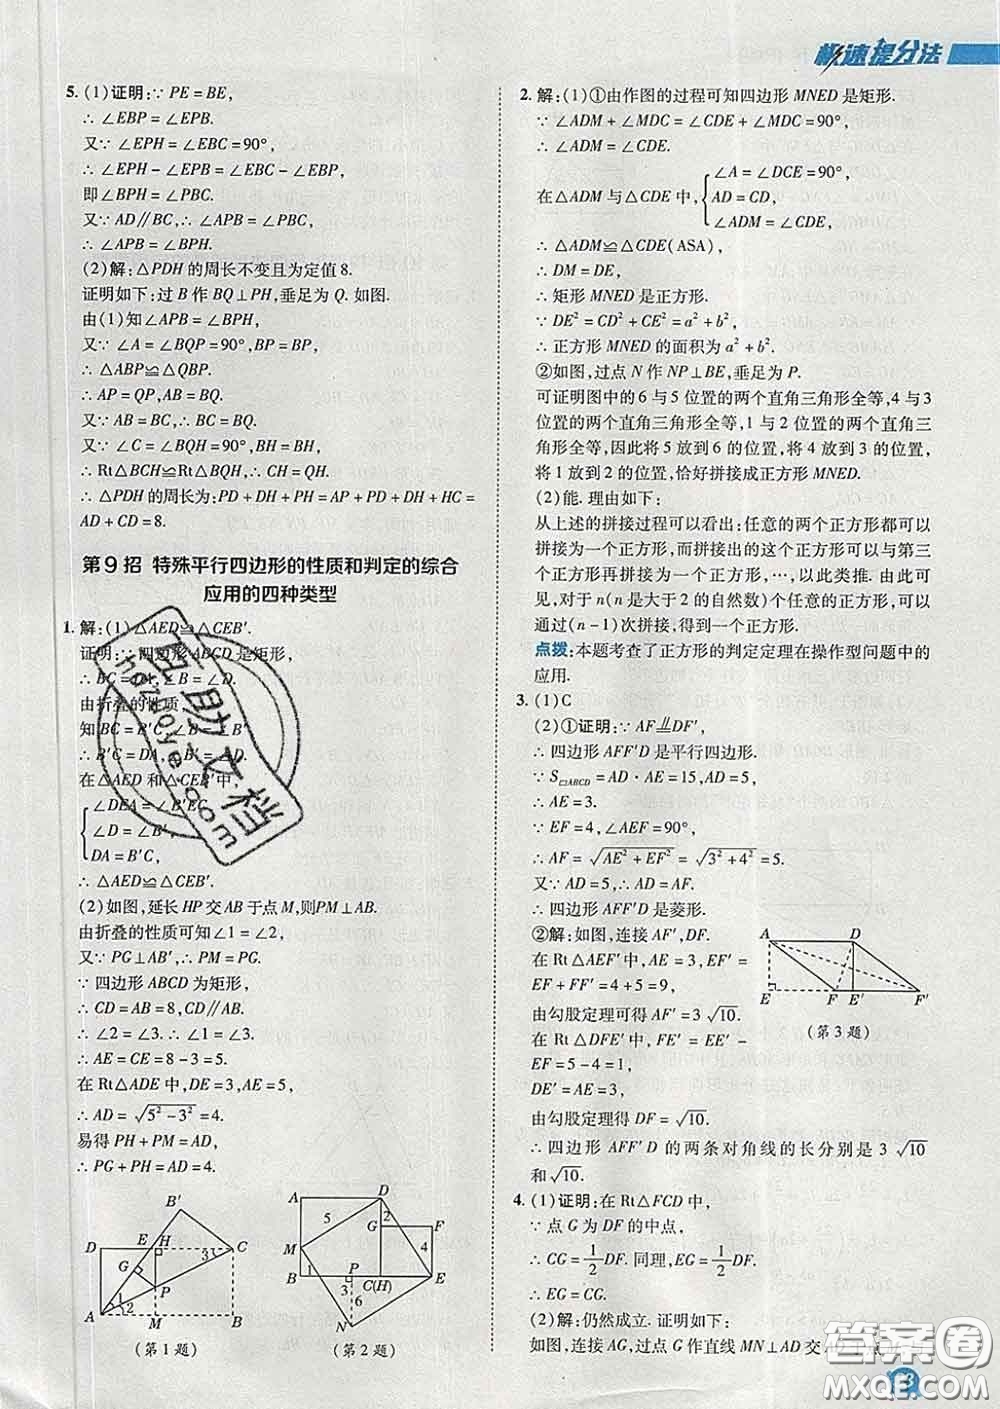 极速提分法
5. (1)证明:∵ PE = BE,
∴ ∠EBP = ∠EPB.
又∵ ∠EPH = ∠EBC = 90°,
∴ ∠EPH − ∠EPB = ∠EBC − ∠EBP,
即∠BPH = ∠PBC.
又∵ AD∥BC, ∴ ∠APB = ∠PBC,
∴ ∠APB = ∠BPH.
(2)解:△PDH 的周长不变且为定值 8.
证明如下:过 B 作 BQ⊥PH,垂足为 Q. 如图.
由(1)知∠APB = ∠BPH,
又∵ ∠A = ∠BQP = 90°, BP = BP,
∴ △ABP≌△QBP.
∴ AP = QP, AB = BQ.
又∵ AB = BC, ∴ BC = BQ.
又∵ ∠C = ∠BQH = 90°, BH = BH,
∴ Rt△BCH≌Rt△BQH, ∴ CH = QH.
∴ △PDH 的周长为:PD + DH + PH = AP + PD + DH + HC =
AD + CD = 8.
第 9 招 特殊平行四边形的性质和判定的综合
应用的四种类型
1. 解:(1)△AED≌△CEB′.
证明:∵ 四边形 ABCD 是矩形,
∴ BC = DA, ∠B = ∠D.
由折叠的性质,
知 BC = B′C, ∠B = ∠B′,
∴ B′C = DA, ∠B′ = ∠D.
在△AED 和△CEB′中,
∠DEA = ∠B′EC,
∠D = ∠B′,
DA = B′C,
∴ △AED≌△CEB′.
(2)如图,延长 HP 交 AB 于点 M,则 PM⊥AB.
由折叠的性质可知∠1 = ∠2,
又∵ PG⊥AB′, ∴ PM = PG.
∵ 四边形 ABCD 为矩形,
∴ CD = AB = 8, CD∥AB.
∴ ∠2 = ∠3. ∴ ∠1 = ∠3.
∴ AE = CE = 8 − 3 = 5.
在 Rt△ADE 中,DE = 3,AE = 5,
∴ AD = √(5² − 3²) = 4.
易得 PH + PM = AD,
∴ PG + PH = AD = 4.
B′
D E H C
G 3
P
1 2
A M B
(第 1 题)
A D
5 2
G F
M 4
1 3
B P C(H) E
6
N
(第 2 题)
2. 解:(1)①由作图的过程可知四边形 MNED 是矩形.
∵ ∠ADM + ∠MDC = ∠CDE + ∠MDC = 90°,
∴ ∠ADM = ∠CDE.
在△ADM 与△CDE 中,
∠A = ∠DCE = 90°,
AD = CD,
∠ADM = ∠CDE,
∴ △ADM≌△CDE(ASA).
∴ DM = DE,
∴ 矩形 MNED 是正方形.
∵ DE² = CD² + CE² = a² + b²,
∴ 正方形 MNED 的面积为 a² + b².
②如图,过点 N 作 NP⊥BE,垂足为 P.
可证明图中的 6 与 5 位置的两个直角三角形全等,4 与 3
位置的两个直角三角形全等,1 与 2 位置的两个直角三角
形全等,因此将 5 放到 6 的位置,将 4 放到 3 的位置,
将 1 放到 2 的位置,恰好拼接成正方形 MNED.
(2)能. 理由如下:
从上述的拼接过程可以看出:任意的两个正方形都可以
拼接为一个正方形,而拼接出的这个正方形可以与第三
个正方形再拼接为一个正方形,…,依此类推. 由此可
见,对于 n(n 是大于 2 的自然数)个任意的正方形,可以
通过(n − 1)次拼接,得到一个正方形.
点拨:本题考查了正方形的判定定理在操作型问题中的
应用.
3. (1)C
(2)①证明:∵ AF∥=DF′,
∴ 四边形 AFF′D 是平行四边形.
∵ S▱ABCD = AD · AE = 15,AD = 5,
∴ AE = 3.
∵ EF = 4, ∠AEF = 90°,
∴ AF = √(AE² + EF²) = √(3² + 4²) = 5.
又∵ AD = 5, ∴ AD = AF.
∴ 四边形 AFF′D 是菱形.
②解:如图,连接 AF′,DF.
在 Rt△AEF′ 中,AE = 3,
EF + FF′ = 4 + 5 = 9,
由勾股定理可得 AF′ = 3√10.
在 Rt△DFE′ 中, FE′ = EE′ −
EF = 5 − 4 = 1,
DE′ = AE = 3,
由勾股定理得 DF = √10.
∴ 四边形 AFF′D 的两条对角线的长分别是 3√10
和√10.
A D
E F E′ F′
(第 3 题)
4. (1)证明:在 Rt△FCD 中,
∵ 点 G 为 DF 的中点,
∴ CG = 1/2 DF. 同理,EG = 1/2 DF.
∴ EG = CG.
(2)解:仍然成立. 证明如下:
如图,连接 AG,过点 G 作直线 MN⊥AD 交
答案圈
MXQE.COM